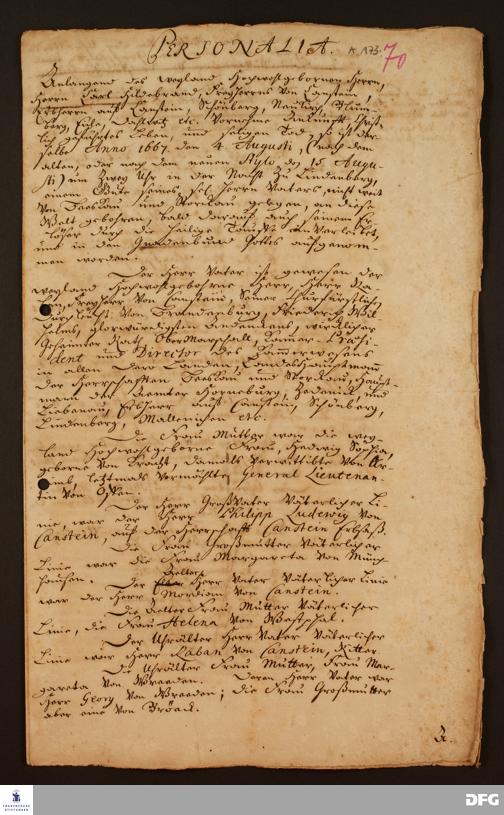 PERSONALIA.
K 173.
70
Anlangend des weyland Hochwohlgebornen Herrn,
Herrn Carl Hildebrand, Freyherrns von Canstein,
Erbherrn auf Canstein, Schönberg, Neukirch, Blum-
berg, Eich, Dahlwitz etc. Vornehme Ankunft, Christ-
lich geführtes Leben, und seligen Tod, so ist der-
selbe Anno 1667. den 4. Augusti, (nach dem
alten, oder nach dem neuen Stylo den 15 Augu-
sti) um zwey Uhr in der Nacht zu Lindenberg,
einem Gute seines sel. Herrn Vaters, nicht weit
von Beeskow und Storkow gelegen, an diese
Welt gebohren, bald darauf auch seinem Er-
löser durch die heilige Tauffe einverleibet,
und in den Gnadenbund Gottes aufgenom-
men worden.
Der Herr Vater ist gewesen der
weyland Hochwohlgeborne Herr, Herr Ra-
ban, Freyherr von Canstein, Seiner Churfürstlichen
Durchlaucht von Brandenburg, Friederich Wil-
helms, glorwürdigsten Andenckens, würcklicher
Geheimter Rath, OberMarschall, Cammer-Praesi-
dent und Director des Cammerwesens
in allen Dero Landen, Landeshauptmann
der Herrschafften Beeskow und Storkow, Haupt-
mann der Aemter Zehdenick und
Liebenau, Erbherr auf Canstein, Schönberg,
Lindenberg, etc.
Die Frau Mutter war die wey-
land Hochwohlgeborne Frau, Hedwig Sophia,
geborne von Kracht, damals verwittibte von Ar-
nimb, letztmals vermählte General Lieutenan-
tin von
Der Herr Großvater Väterlicher Li-
nie, war der Herr Philipp Ludewig von
Canstein, auf der Herrschafft Canstein Erbsaß.
Die Frau Großmutter Väterlicher
Linie war die Frau Margareta von Münch-
hausen.
Der Aelter Herr Vater Väterlicher Linie
war der Herr Mordian von Canstein.
Die Aelter Frau Mutter Väterlicher
Linie, die Frau Helena von Westphal.
Der Uhrälter Herr Vater Väterlicher
Linie war Herr Raban von Canstein, Ritter.
Die Uhrälter Frau Mutter, Frau Mar-
gareta von Deren Herr Vater war
Herr Georg von ; die Frau Großmutter
aber eine von
FRANCKESCHE
STIFTUNGEN
DFG